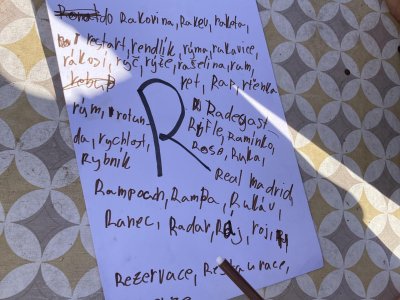 do Rakovina, Rakev, raketa,
restart, rendlík, rýma, rukavice,
rákosí, rýč, rýže, rašelina, ram,
ret, Rar, rtěnka
R
rum, rotun
da, rychlost,
Rybník
Radegast
Rifle, Raminko,
Rosa, Ruka,
Real madrid,
Rampouch, Rampa, Rukáv,
Ranec, Radar, Ráj, roj,
Rezervace, Restaurace,